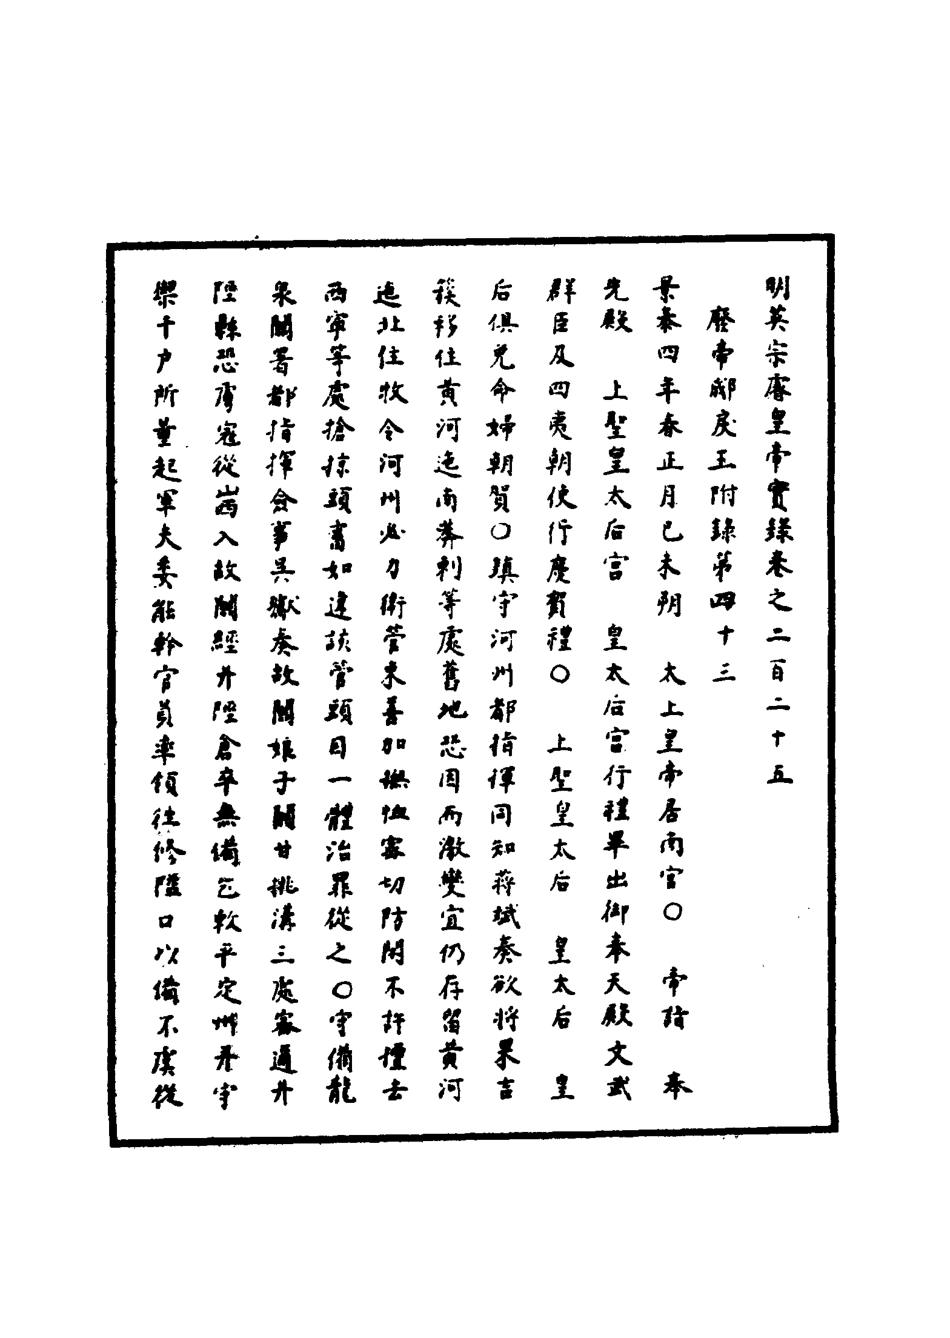 明英宗睿皇帝實錄卷之二百二十五
廢帝郕戾王附錄第四十三
景泰四年春正月己未朔 太上皇帝居南宮○ 帝詣 奉
先殿 上聖皇太后宮 皇太后宮行禮畢出御奉天殿文武
群臣及四夷朝使行慶賀禮○ 上聖皇太后 皇太后 皇
后俱免命婦朝賀○鎮守河州都指揮同知蔣斌奏欲將果吉
簇移住黃河迤南莽剌等處舊地恐因而激變宜仍存留黃河
迤北住牧令河州必力衛管束善加撫恤密切防閑不許擅去
西寧等處搶掠頭畜如違該管頭目一體治罪從之○守備龍
泉關署都指揮僉事吳嶽奏故關娘子關甘挑溝三處密邇井
陘縣恐虜寇從山西入故關經井陘倉卒無備乞敕平定州并守
禦千戶所量起軍夫委能幹官員率領往修隘口以備不虞從